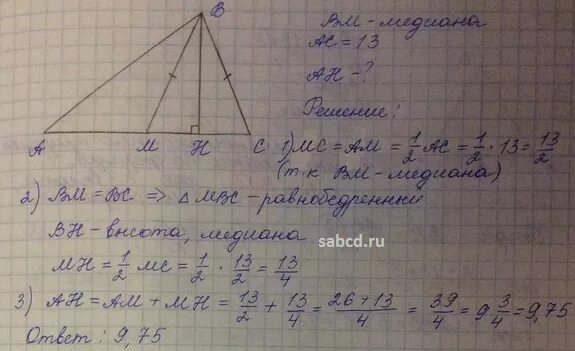 B
A M H C
BM - медиана
AC = 13
AH - ?
Решение:
1) MC = AM = 1/2 AC = 1/2 · 13 = 13/2
(т.к BM - медиана)
2) BM = BC => △ MBC - равнобедренный
BH - высота, медиана
sabcd.ru
MH = 1/2 MC = 1/2 · 13/2 = 13/4
3) AH = AM + MH = 13/2 + 13/4 = 26+13/4 = 39/4 = 9 3/4 = 9,75
Ответ: 9,75